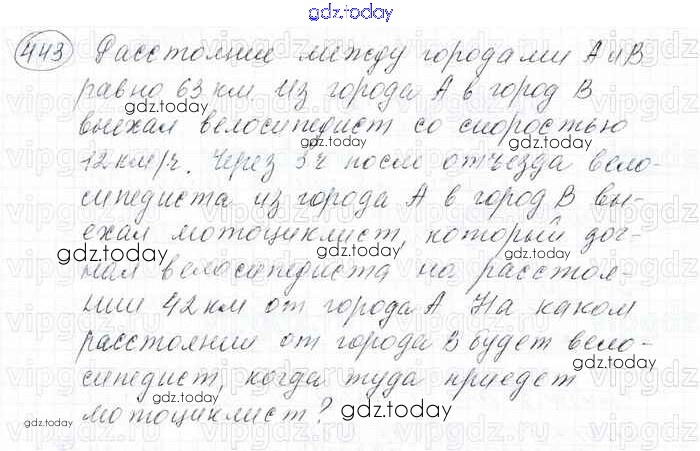 gdz.today
443 Расстояние между городами А и В
равно 63 км. Из города А в город В
gdz.today
выехал велосипедист со скоростью
12 км/ч. Через 3 ч после отъезда вело-
gdz.today
сипедиста из города А в город В вы-
ехал мотоциклист, который дог-
gdz.today gdz.today
нал велосипедиста на расстоя-
нии 42 км от города А. На каком
gdz.today
расстоянии от города В будет вело-
сипедист, когда туда приедет
gdz.today
мотоциклист? gdz.today